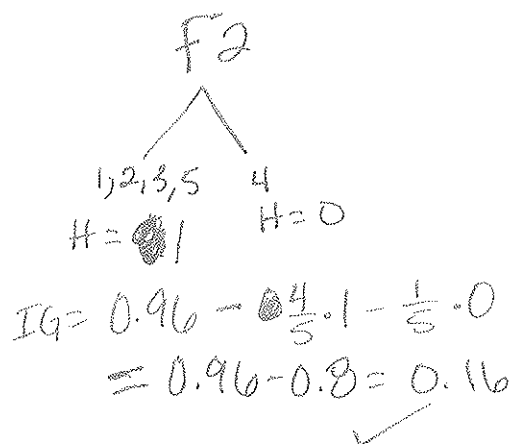 F2
1,2,3,5 4
H = 1 H = 0
IG = 0.96 - 4/5 · 1 - 1/5 · 0
= 0.96 - 0.8 = 0.16